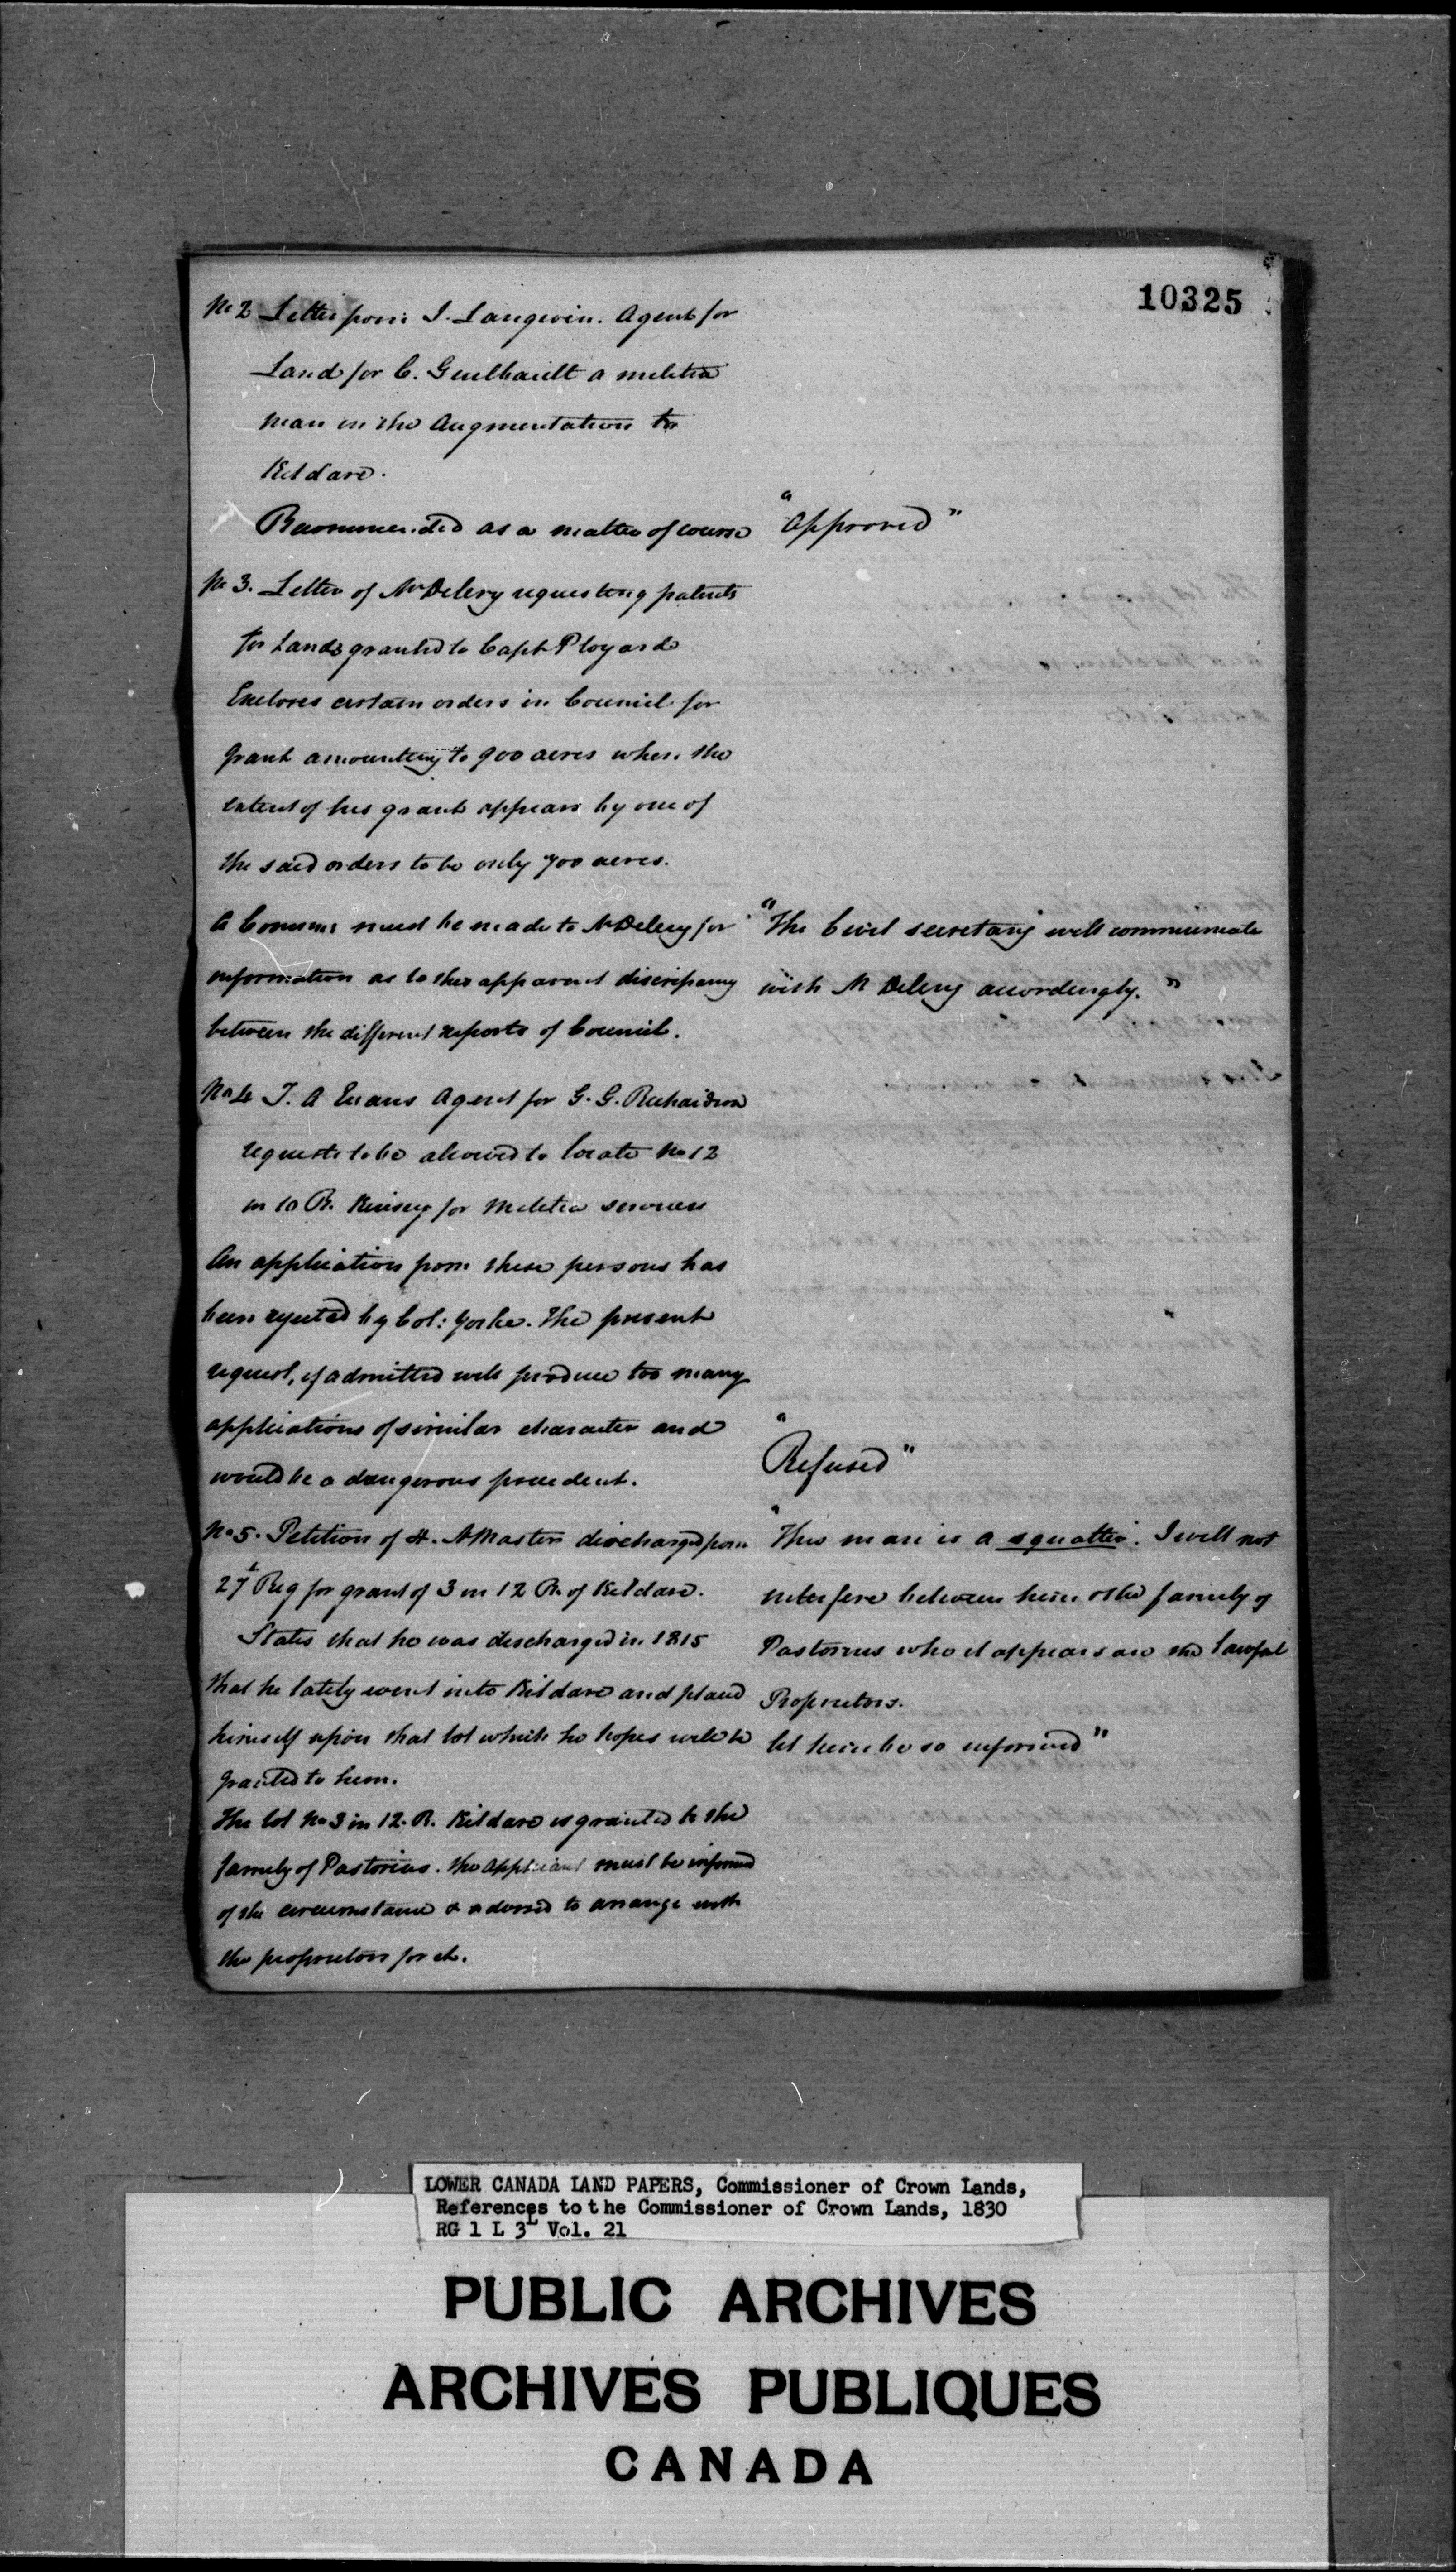 10325
No 2 Letter from J. Langevin. Agent for
Land for C. Guilbault a militia
man in the Augmentation to
Kildare.
Recommended as a matter of course
"approved"
No 3. Letter of Mr Delery requesting patents
for Lands granted to Capt
Encloses certain orders in Council for
grant amounting to 900 acres when the
extent of his grant appears by one of
the said orders to be only 700 acres.
A must be made to Mr Delery for
information as to the apparent discrepancy
between the different reports of Council.
"The Civil secretary will communicate
with M Delery accordingly."
No 4 J. A Evans Agent for G. G. Richardson
requests to be allowed to locate No 12
in 10 R. Kinsey for Militia services
An application from these persons has
been rejected by Col: Yorke. The present
request, if admitted will produce too many
applications of similar character and
would be a dangerous precedent.
"Refused"
No 5. Petition of H. Masters discharged from
27t Reg for grant of 3 in 12 R. of Kildare.
States that he was discharged in 1815
that he lately went into Kildare and placed
himself upon that lot which he hopes will be
granted to him.
The lot No 3 in 12. R. Kildare is granted to the
family of Pastorius. the applicant must be informed
of the circumstance & advised to arrange with
the proprietors for it.
"This man is a squatter. I will not
interfere between him & the family of
Pastorius who it appears are the lawful
Proprietors.
let him be so informed"
LOWER CANADA LAND PAPERS, Commissioner of Crown Lands,
References to the Commissioner of Crown Lands, 1830
RG 1 L 3L Vol. 21
PUBLIC ARCHIVES
ARCHIVES PUBLIQUES
CANADA